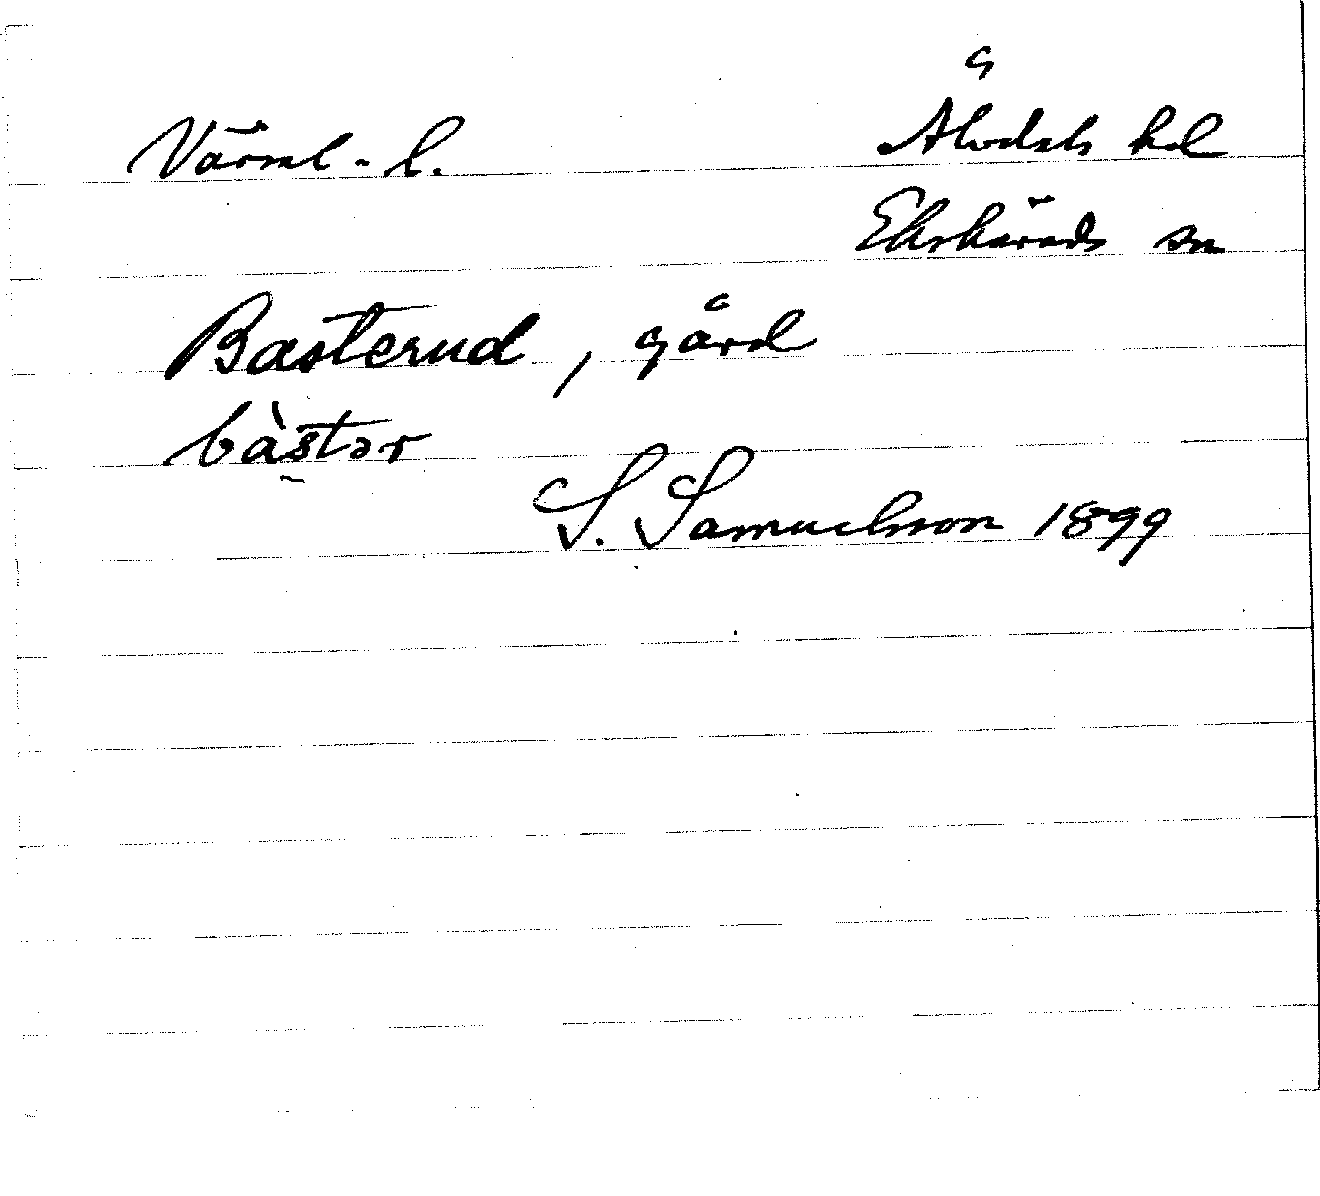 å
Värml. l. Älvdals hd
Ekshärads sn
Basterud, gård
bàstər
S. Samuelsson 1899